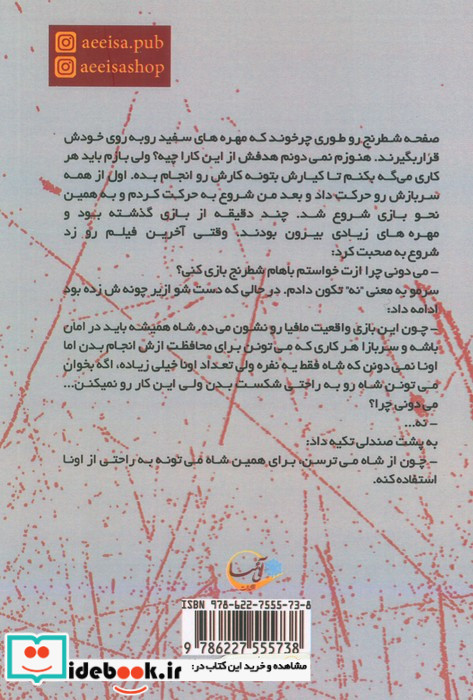 aeeisa.pub
aeeisashop
صفحه شطرنج رو طوری چرخوند که مهره های سفید روبه روی خودش
قراربگیرند. هنوزم نمی دونم هدفش از این کارا چیه؟ ولی بازم باید هر
کاری می‌گه بکنم تا کیارش بتونه کارش رو انجام بده. اول از همه
سربازش رو حرکت داد و بعد من شروع به حرکت کردم و به همین
نحو بازی شروع شد. چند دقیقه از بازی گذشته بود و
مهره های زیادی بیرون بودند، وقتی آخرین فیلم رو زد
شروع به صحبت کرد:
- می دونی چرا ازت خواستم باهام شطرنج بازی کنی؟
سرمو به معنی "نه" تکون دادم. در حالی که دست شو ازیر چونه ش زده بود
ادامه داد:
- چون این بازی واقعیت مافیا رو نشون می ده، شاه همیشه باید در امان
باشه و سربازا هر کاری که می تونن برای محافظت ازش انجام بدن اما
اونا نمی دونن که شاه فقط یه نفره ولی تعداد اونا خیلی زیاده، اگه بخوان
می تونن شاه رو به راحتی شکست بدن ولی این کار رو نمیکنن...
می دونی چرا؟
- نه...
به پشت صندلی تکیه داد:
- چون از شاه می ترسن، برای همین شاه می تونه به راحتی از اونا
استفاده کنه.
ISBN 978-622-7555-73-8
9 786227 555738
idebook.ir
مشاهده و خرید این کتاب در: